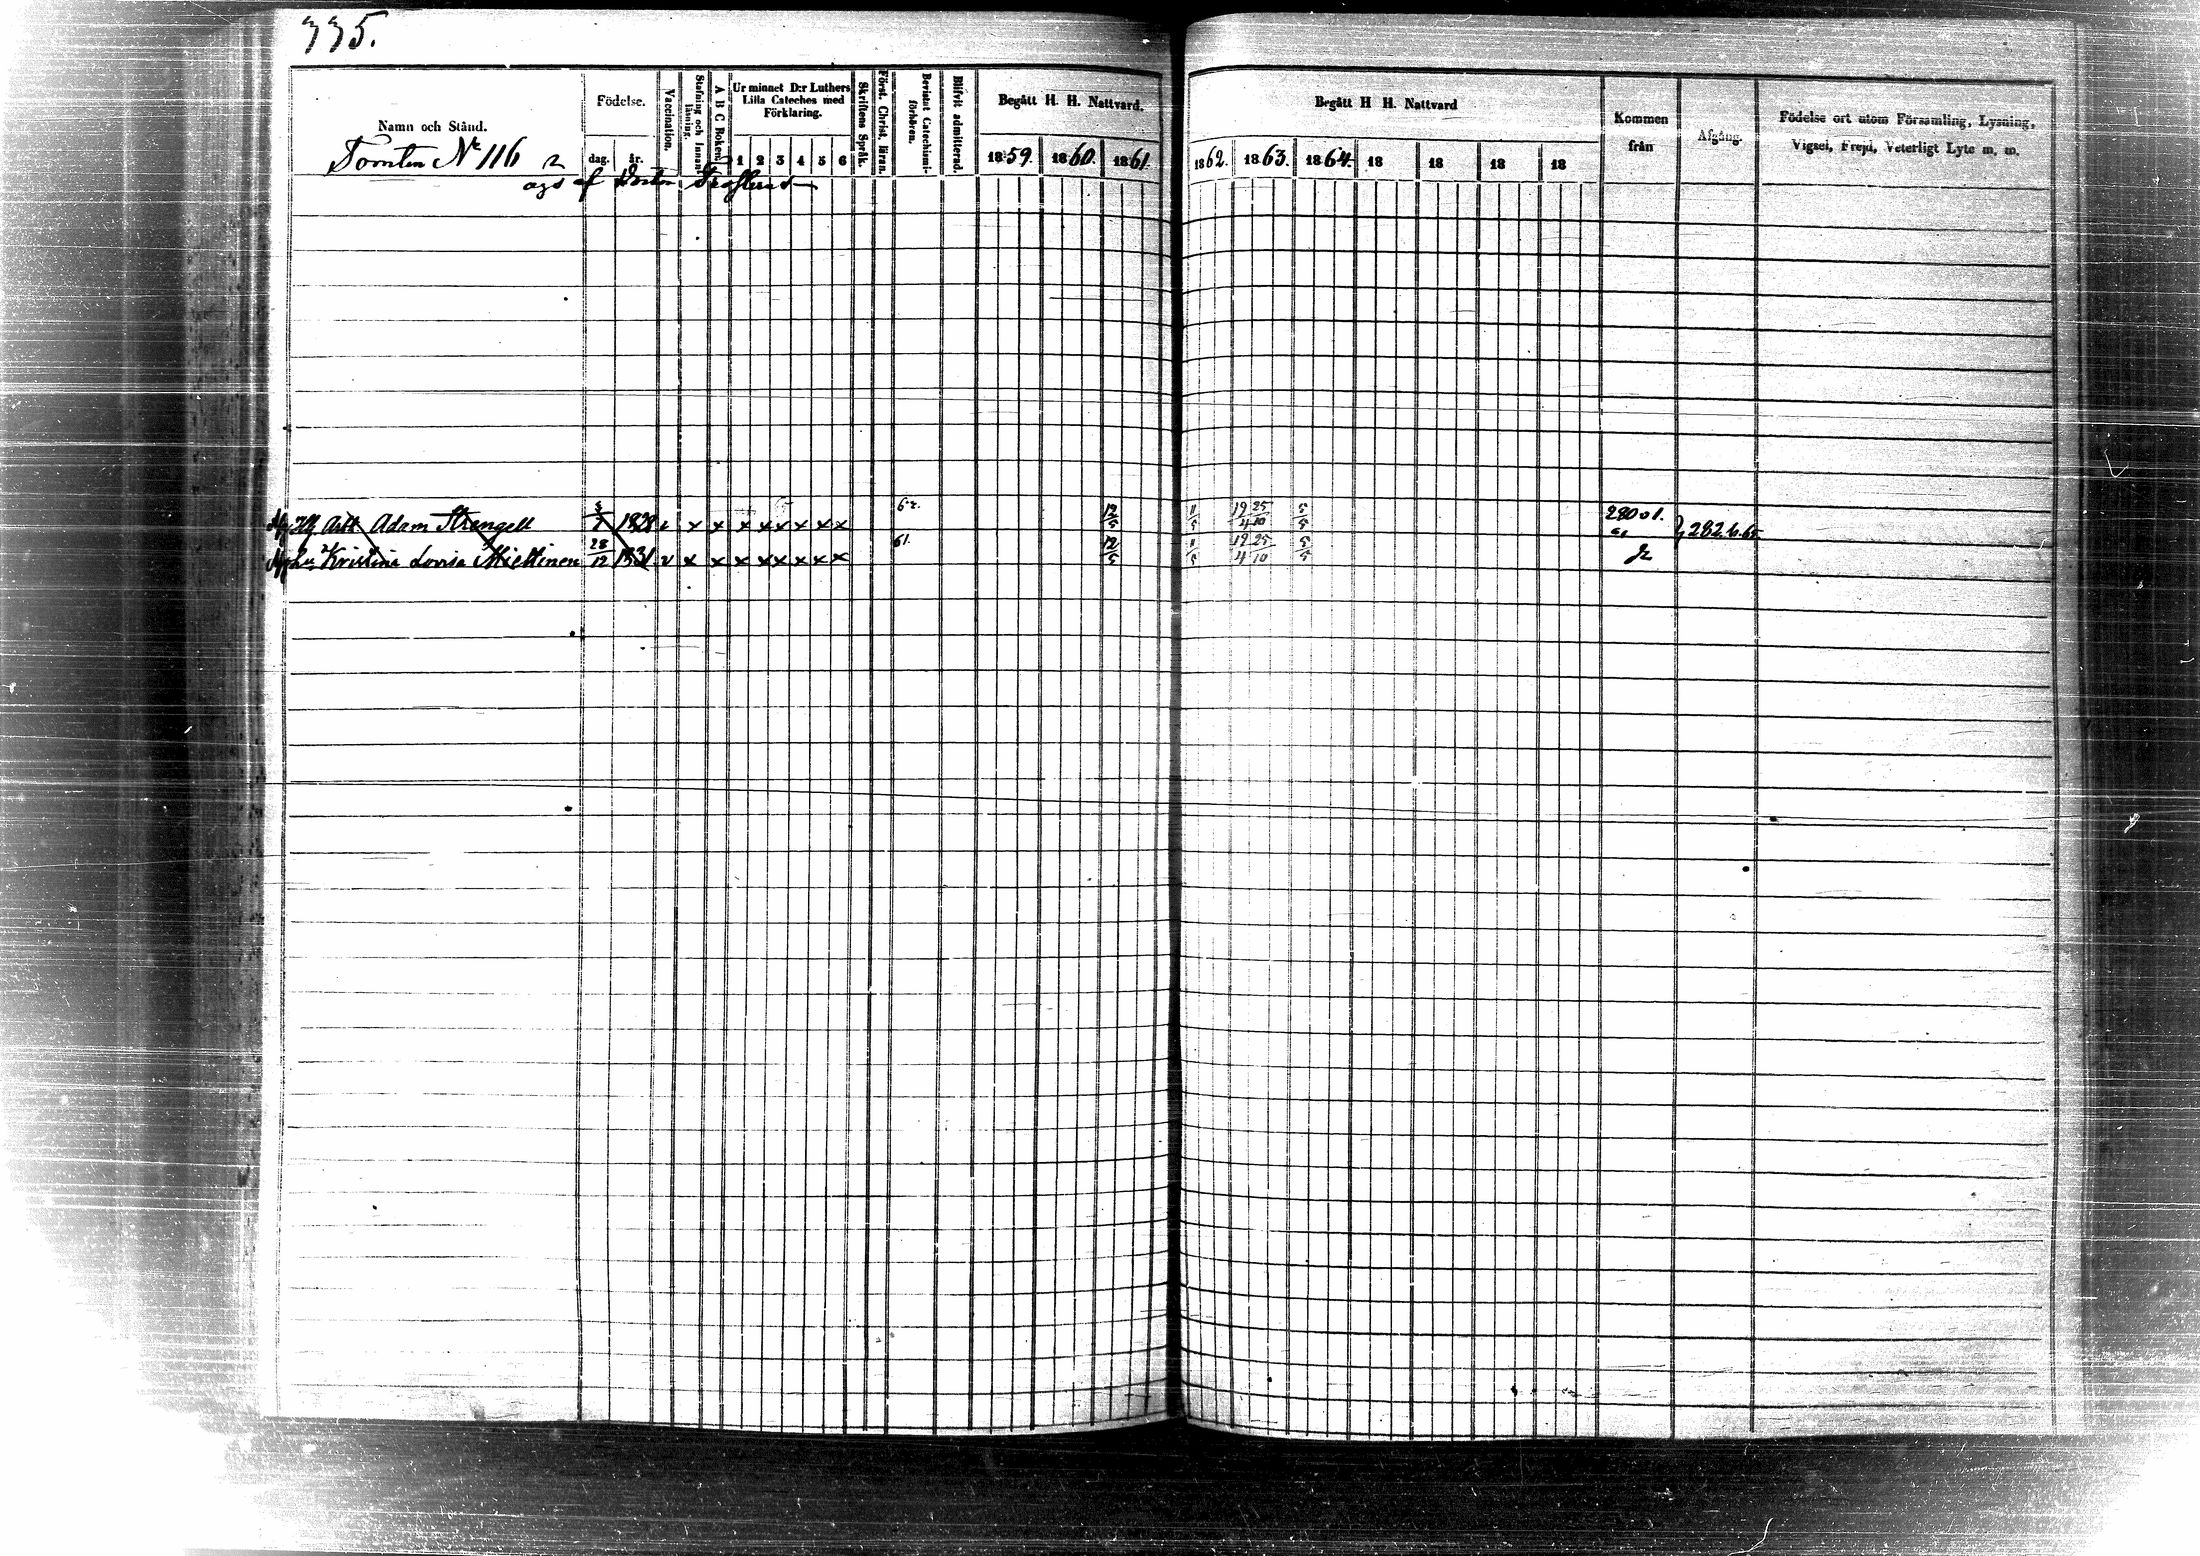 335.
Namn och Stånd.
Tomten No 116
Födelse.
dag. år.
Vaccination.
Stafning och Innanläsning.
A B C Boken.
Ur minnet D:r Luthers Lilla Cateches med Förklaring.
1 2 3 4 5 6
Skriftens Språk.
Först. Christ. läran.
Bevistat Catechismi-förhören.
Blifvit admitterad.
Begått H. H. Nattvard.
1859. 1860. 1861.
Begått H H. Nattvard
1862. 1863. 1864. 18 18 18 18
Kommen från
Afgång.
Födelse ort utom Församling, Lysning, Vigsel, Frejd, Veterligt Lyte m, m.
äges af
Adam Strengell 1828 v x x x x x x x x 62. 12/5 11/5 19/4 25/10 5/5 280 282
Kristina Lovisa Miettinen 28/12 1831 v x x x x x x x x 61. 12/5 11/5 19/4 25/10 5/5